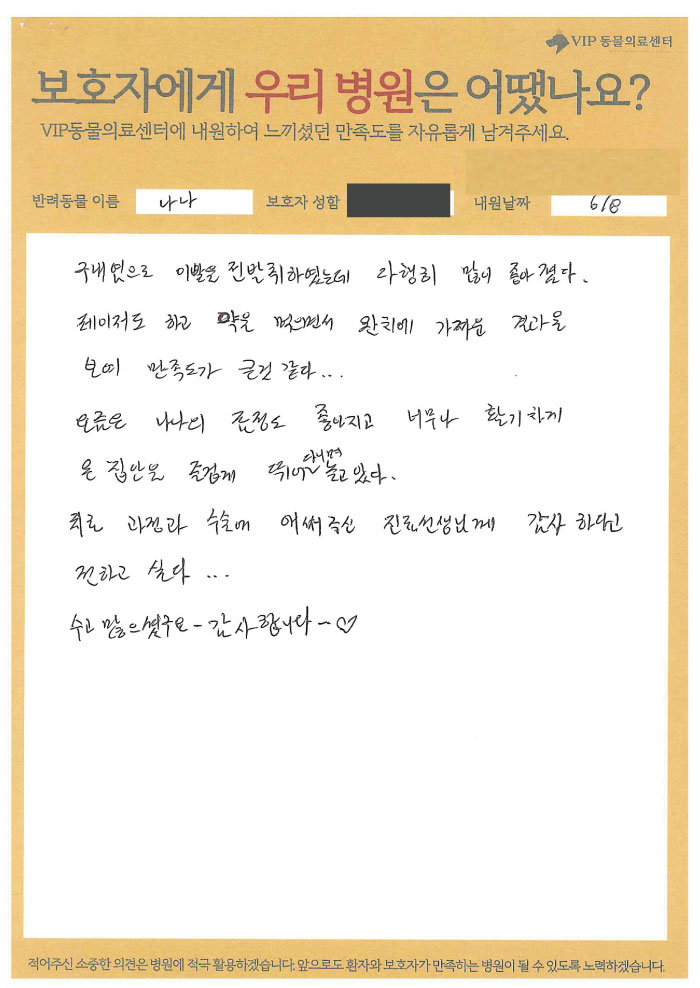 VIP 동물의료센터
보호자에게 우리 병원은 어땠나요?
VIP동물의료센터에 내원하여 느끼셨던 만족도를 자유롭게 남겨주세요.
반려동물 이름 나나 보호자 성함 내원날짜 6/8
구내염으로 이빨을 전발취하였는데 다행히 많이 좋아졌다.
레이저도 하고 약을 먹으면서 완치에 가까운 결과을
보여 만족도가 큰것 같다...
요즘은 나나의 표정도 좋아지고 너무나 활기하게
온 집안을 즐겁게 뛰어다니며 놀고있다.
치료 과정과 수술에 애써주신 진료선생님께 감사 하다고
전하고 싶다 ...
수고 많으셨구요 - 감사합니다 ~ ♡
적어주신 소중한 의견은 병원에 적극 활용하겠습니다. 앞으로도 환자와 보호자가 만족하는 병원이 될 수 있도록 노력하겠습니다.